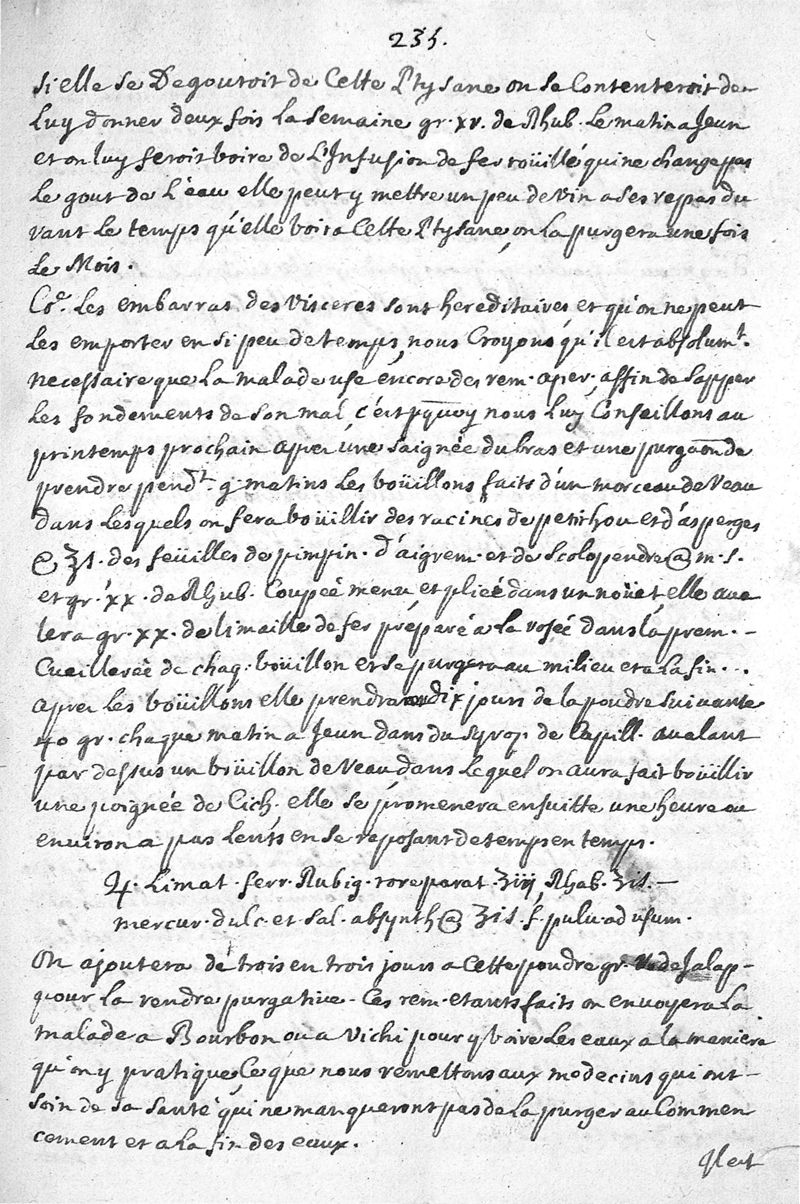 235.
si elle se Degoutoit de Cette Ptysane on se Contenteroit de
Luy donner deux fois La semaine gr. xv. de Rhub. Le matin a Jeun
et on luy feroit boire de L'Infusion de fer roüillé qui ne change pas
Le gout de L'eau elle peut y mettre un peu de vin a ses repas du
rant Le temps qu'elle boira Cette Ptysane, on La purgera une fois
Le Mois.
Co.e Les embarras des visceres sont hereditaires et qu'on ne peut
Les emporter en si peu de temps, nous Croyons qu'il est absolum.t
necessaire que La malade use encore des rem. aper. affin de sapper
Les fondements de son mal, c'est pquoy nous Luy Conseillons au
printemps prochain aprez une saignée du bras et une purgaon de
prendre pend.t 9 matins Les boüillons faits d'un morceau de Veau
dans Lesquels on fera boüillir des racines de petit hou et d'asperges
@ ʒ1. des feüilles de pimpin. d'aigrem. et de Scolopendre @ m. s.
et gr. xx. de Rhub. Coupée menu et pliée dans un noüet, elle ava
lera gr. xx. de limaille de fer préparé a La rosée dans la prem. -
Cueillerée de chaq. boüillon et se purgera au milieu et a La fin...
aprez les boüillons elle prendra dix jours de la poudre suivante
40 gr. chaque matin a Jeun dans du Syrop. de Capill. avalant
par dessus un boüillon de Veau, dans Lequel on aura fait boüillir
une poignée de Cich. elle se promenera ensuitte une heure ou
environ a pas Lents en se reposant de temps en temps.
♃. Limat. ferr. Rubig. rore parat. ʒiij, Rhab. ʒis. -
mercur. dulc. et Sal. absynth @ ʒis. f. pulv. ad usum.
On ajoutera de trois en trois jours a Cette poudre gr. de Jalap -
pour La rendre purgative. Ces rem. etants faits on envoyera La
malade a Bourbon ou a Vichi pour y boire Les eaux a la maniere
qu'on y pratique, Ce que nous remettons aux medecins qui ont -
soin de sa santé qui ne manqueront pas de La purger au Commen
cement et a La fin des eaux.